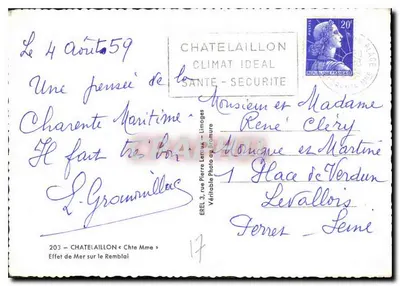 Le 4 Août 59
Une pensée de la
Charente Maritime.
Il fait très bon
CHATELAILLON
CLIMAT IDEAL
SANTE - SECURITE
20F
Monsieur et Madame
René Cléry
Monique et Martine
1 Place de Verdun
Levallois
Perret - Seine
EREL 3, rue Pierre Leroux - Limoges
Véritable Photo au Bromure
203 - CHATELAILLON « Chte Mme »
Effet de Mer sur le Remblai
17